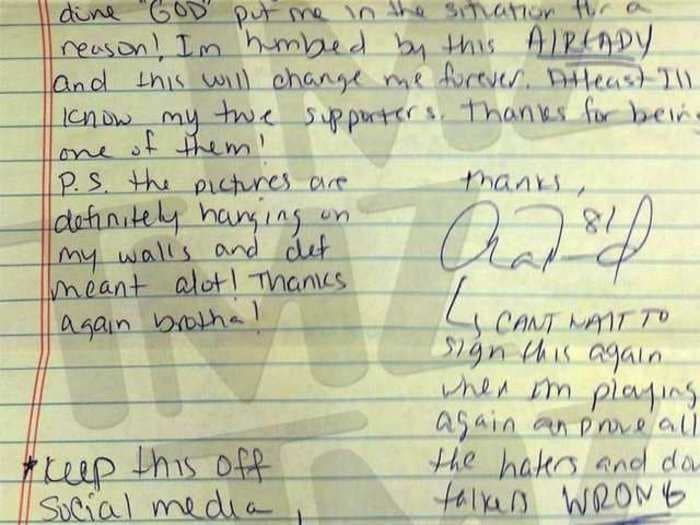 done "GOD" put me in the situation for a
reason! Im humbled by this AlREADY
and this will change me forever. Atleast I'll
know my true supporters. Thanks for being
one of them!
P.S. the pictures are
definitely hanging on
my walls and def
meant alot! Thanks
again brotha!
*Keep this off
social media,
Thanks,
81
CANT WAIT TO
sign this again
when Im playing
again an prove all
the haters and do
talkers WRONG
TMZ